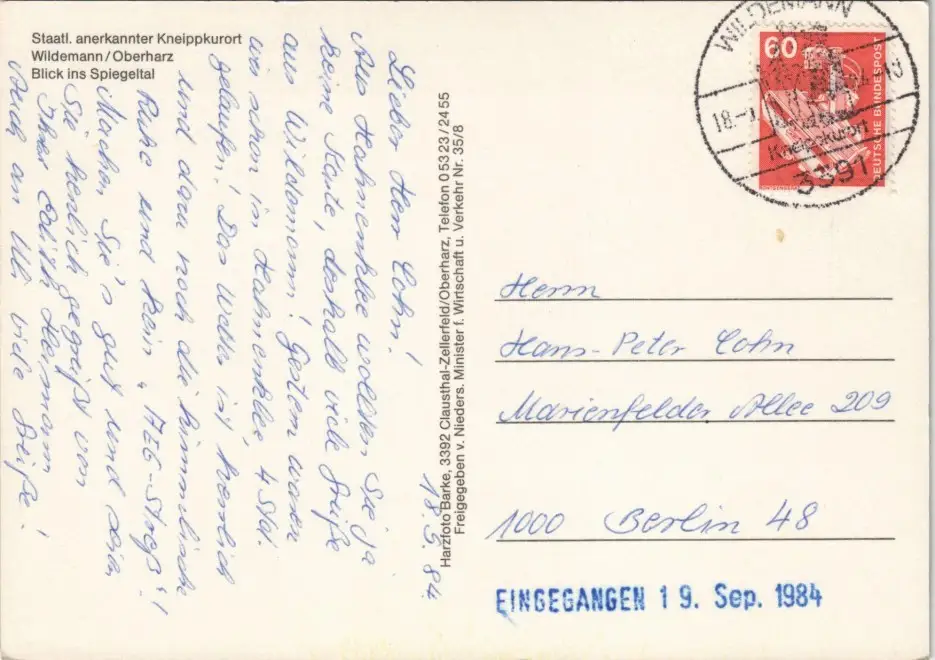 Staatl. anerkannter Kneippkurort
Wildemann/Oberharz
Blick ins Spiegeltal
18.9.84
Lieber Herr Cohn!
Aus Hahnenklee wollten Sie ja
keine Karte, deshalb viele Grüße
aus Wildemann! Gestern waren
wir schon in Hahnenklee, 4 Std.
gelaufen! Das Wetter ist herrlich
und dazu noch die himmlische
Ruhe und kein "AEG-Streß"!
Machen Sie's gut und seien
Sie herzlich gegrüßt von
Ihrer Edith
Auch an Uli viele Grüße!
Harzfoto Barke, 3392 Clausthal-Zellerfeld/Oberharz, Telefon 05323/2455
Freigegeben v. Nieders. Minister f. Wirtschaft u. Verkehr Nr. 35/8
WILDEMANN
18.-9.
Kneippkurort
3391
60
DEUTSCHE BUNDESPOST
Herrn
Hans-Peter Cohn
Marienfelder Allee 209
1000 Berlin 48
EINGEGANGEN 19. Sep. 1984